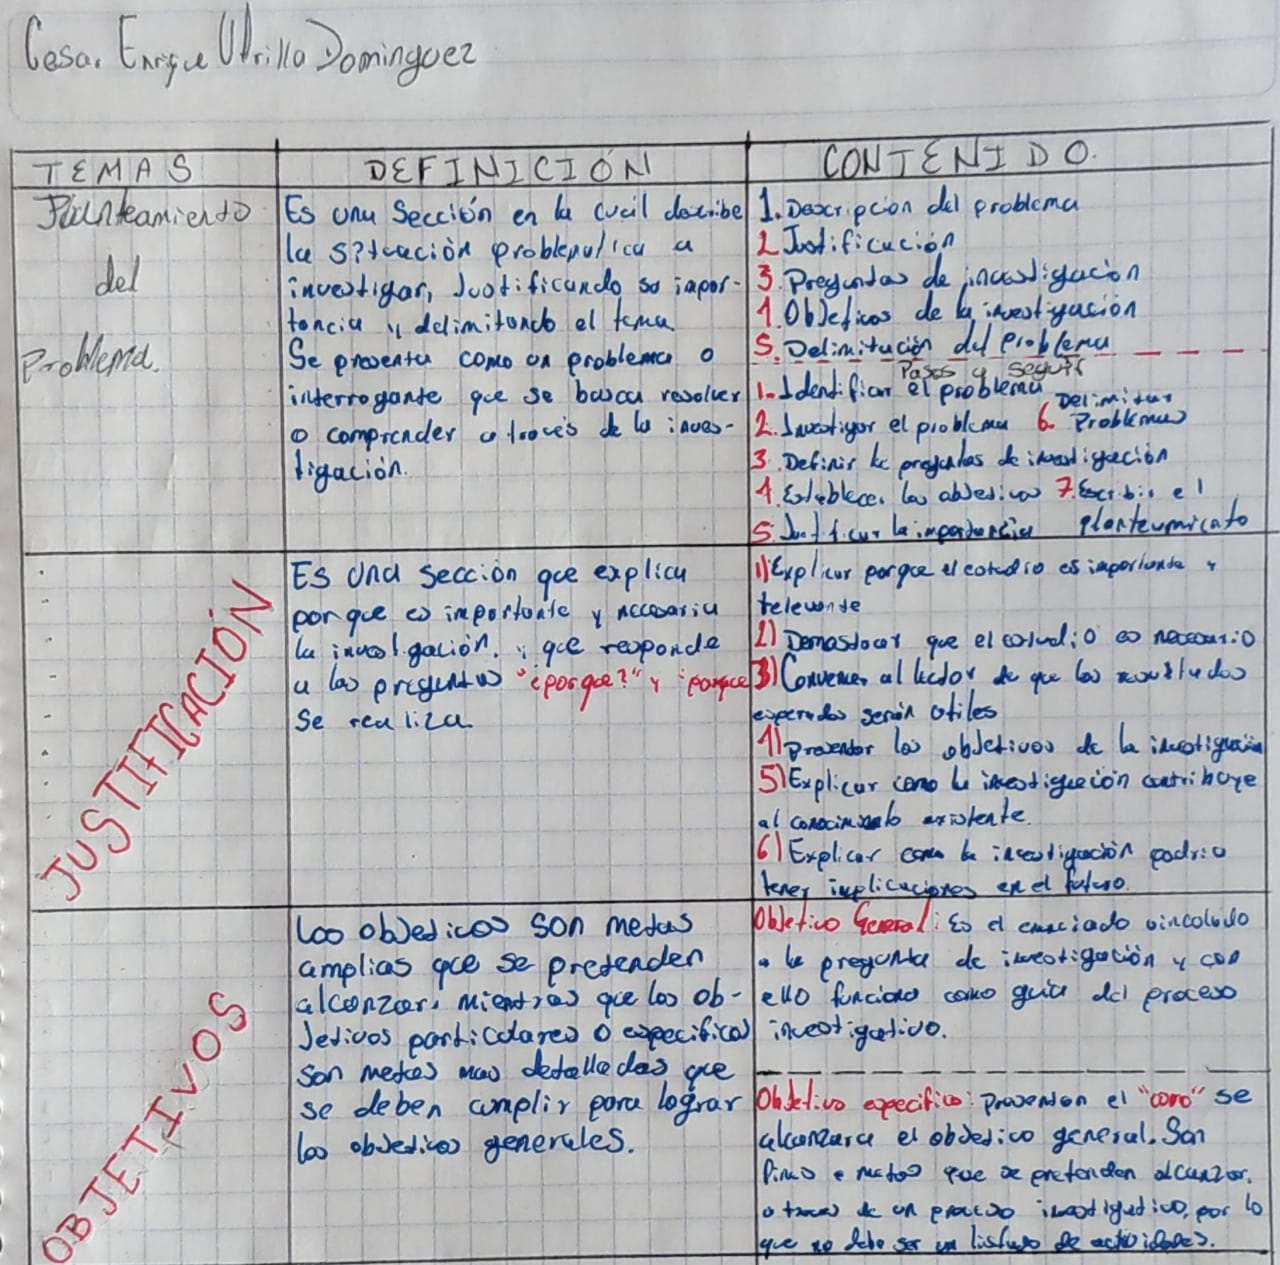 Cesar Enrique Utrilla Dominguez
TEMAS
DEFINICIÓN
CONTENIDO.
Planteamiento
del
Problema.
Es una Sección en la cual describe
la situación problematica a
investigar, Justificando su impor-
tancia y delimitando el tema
Se presenta como un problema o
interrogante que se busca resolver
o comprender a través de la inves-
tigación.
1. Descripcion del problema
2 Justificación
3. Preguntas de investigación
4. Objetivos de la investigación
5. Delimitación del Problema
Pasos a seguir
1. Identificar el problema
2. Investigar el problema
3. Definir la preguntas de investigación
4. Establecer los objetivos
5. Justificar la importancia
6. Delimitar
Problemas
7. Escribir el
planteamiento
JUSTIFICACIÓN
Es una sección que explica
porque es importante y necesaria
la investigación. y que responde
a las preguntas "¿porque?" y "porque
Se realiza.
1) Explicar porque el estudio es importante y
relevante
2) Demostrar que el estudio es necesario
3) Convencer al lector de que los resultados
esperados serán utiles
4) presentar los objetivos de la investigación
5) Explicar como la investigación contribuye
al conocimiento existente.
6) Explicar como la investigación podria
tener implicaciones en el futuro.
OBJETIVOS
Los objetivos son metas
amplias que se pretenden
alcanzar, mientras que los ob-
jetivos particulares o especificos
son metas mas detalladas que
se deben cumplir para lograr
los objetivos generales.
Objetivo General: Es el enunciado vinculado
a la pregunta de investigación y con
ello funciona como guia del proceso
investigativo.
Objetivo especifico: presentan el "como" se
alcanzara el objetivo general. Son
fines o metas que se pretenden alcanzar.
a traves de un proceso investigativo, por lo
que no debe ser un listado de actividades.